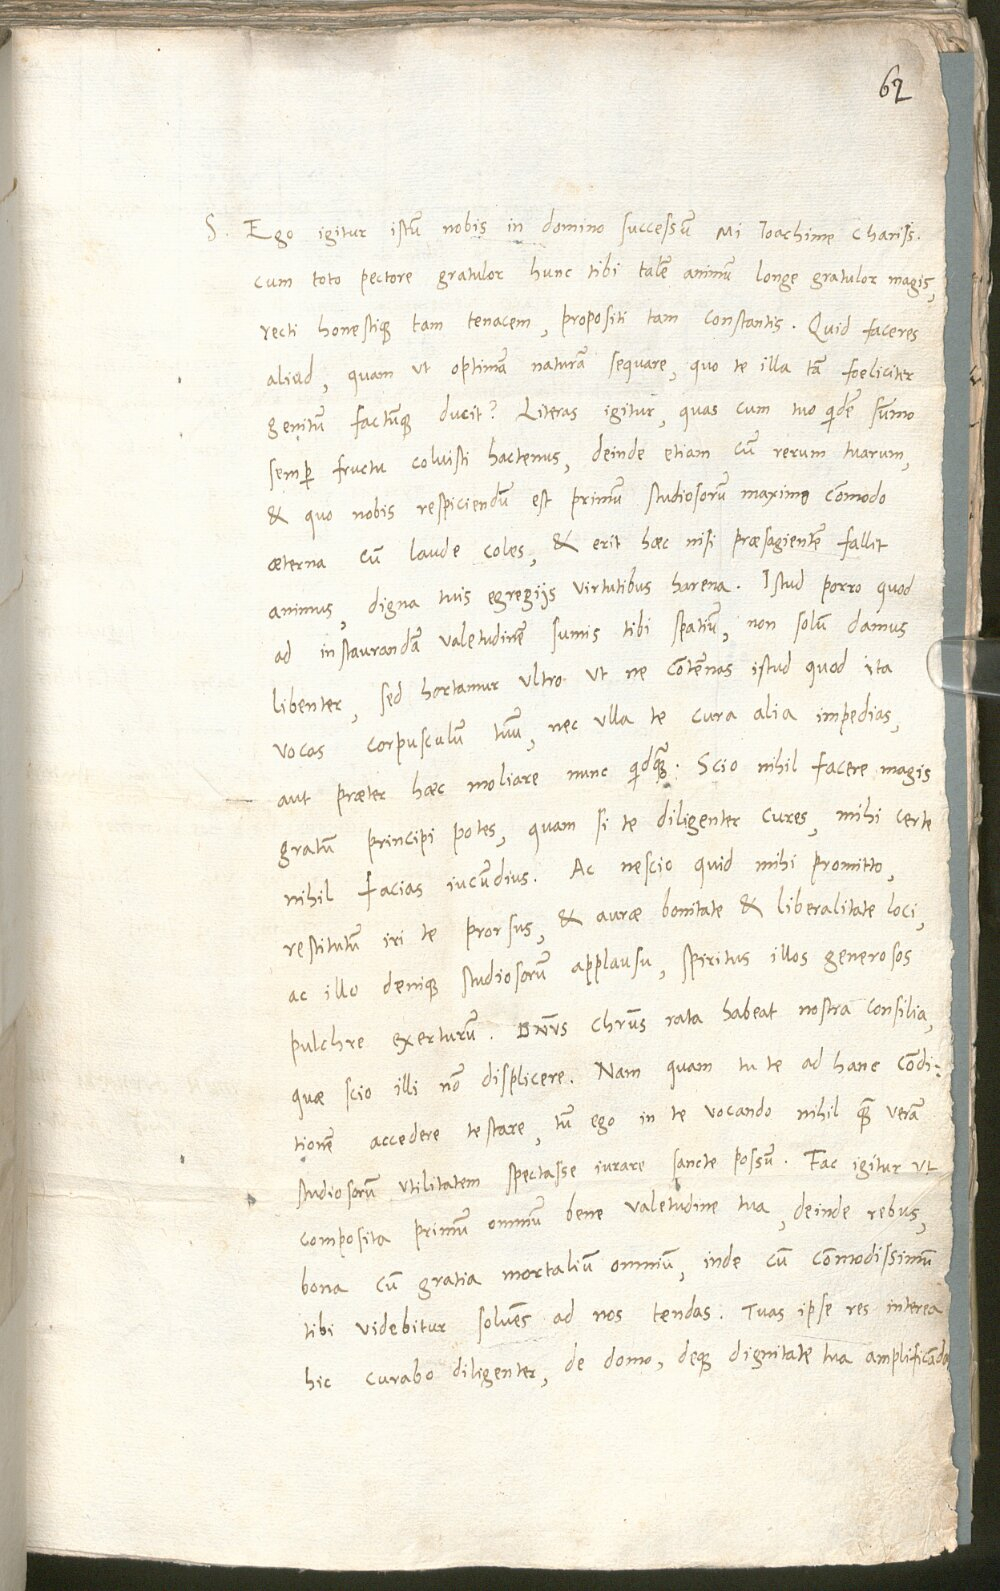 62
S. Ego igitur istū nobis in domino successū Mi Ioachime Chariss.
cum toto pectore gratulor hunc tibi talē animū longe gratulor magis,
recti honestiqꝫ tam tenacem, propositi tam constantis. Quid faceres
aliud, quam ut optimā naturā sequare, quo te illa tā foeliciter
genitū factūqꝫ ducit? Literas igitur, quas cum tuo qͥdē sūmo
semꝑ fructu coluisti hactenus, deinde etiam cū rerum tuarum,
& quo nobis respiciendū est primū studiosorū maximo cōmodo
æterna cū laude coles, & erit hæc nisi præsagientē fallit
animus, digna tuis egregijs virtutibus harena. Istud porro quod
ad instaurandā valetudinē sumis tibi spatiū, non solū damus
libenter, sed hortamur ultro ut ne cōtēnas istud quod ita
vocas corpusculū tuū, nec ulla te cura alia impedias,
aut præter hæc moliare nunc qͥdqꝫ̄. Scio nihil facere magis
gratū principi potes, quam si te diligenter cures, mihi certe
nihil facias iucūdius. Ac nescio quid mihi promitto,
restitutū iri te prorsus, & auræ bonitate & liberalitate loci,
ac illo deniqꝫ studiosorū applausu, spiritus illos generosos
pulchre exerturū. DNV̄S Chrūs rata habeat nostra consilia,
quæ scio illi nō displicere. Nam quam tu te ad hanc cōdi-
tionē accedere testare, tū ego in te vocando nihil qꝫ̄ verā
studiosorū utilitatem spectasse iurare sancte possū. Fac igitur ut
composita primū omniū bene valetudine tua, deinde rebus,
bona cū gratia mortaliū omniū, inde cū cōmodissimū
tibi videbitur solvēs ad nos tendas. Tuas ipse res interea
hic curabo diligenter, de domo, deqꝫ dignitate tua amplificāda